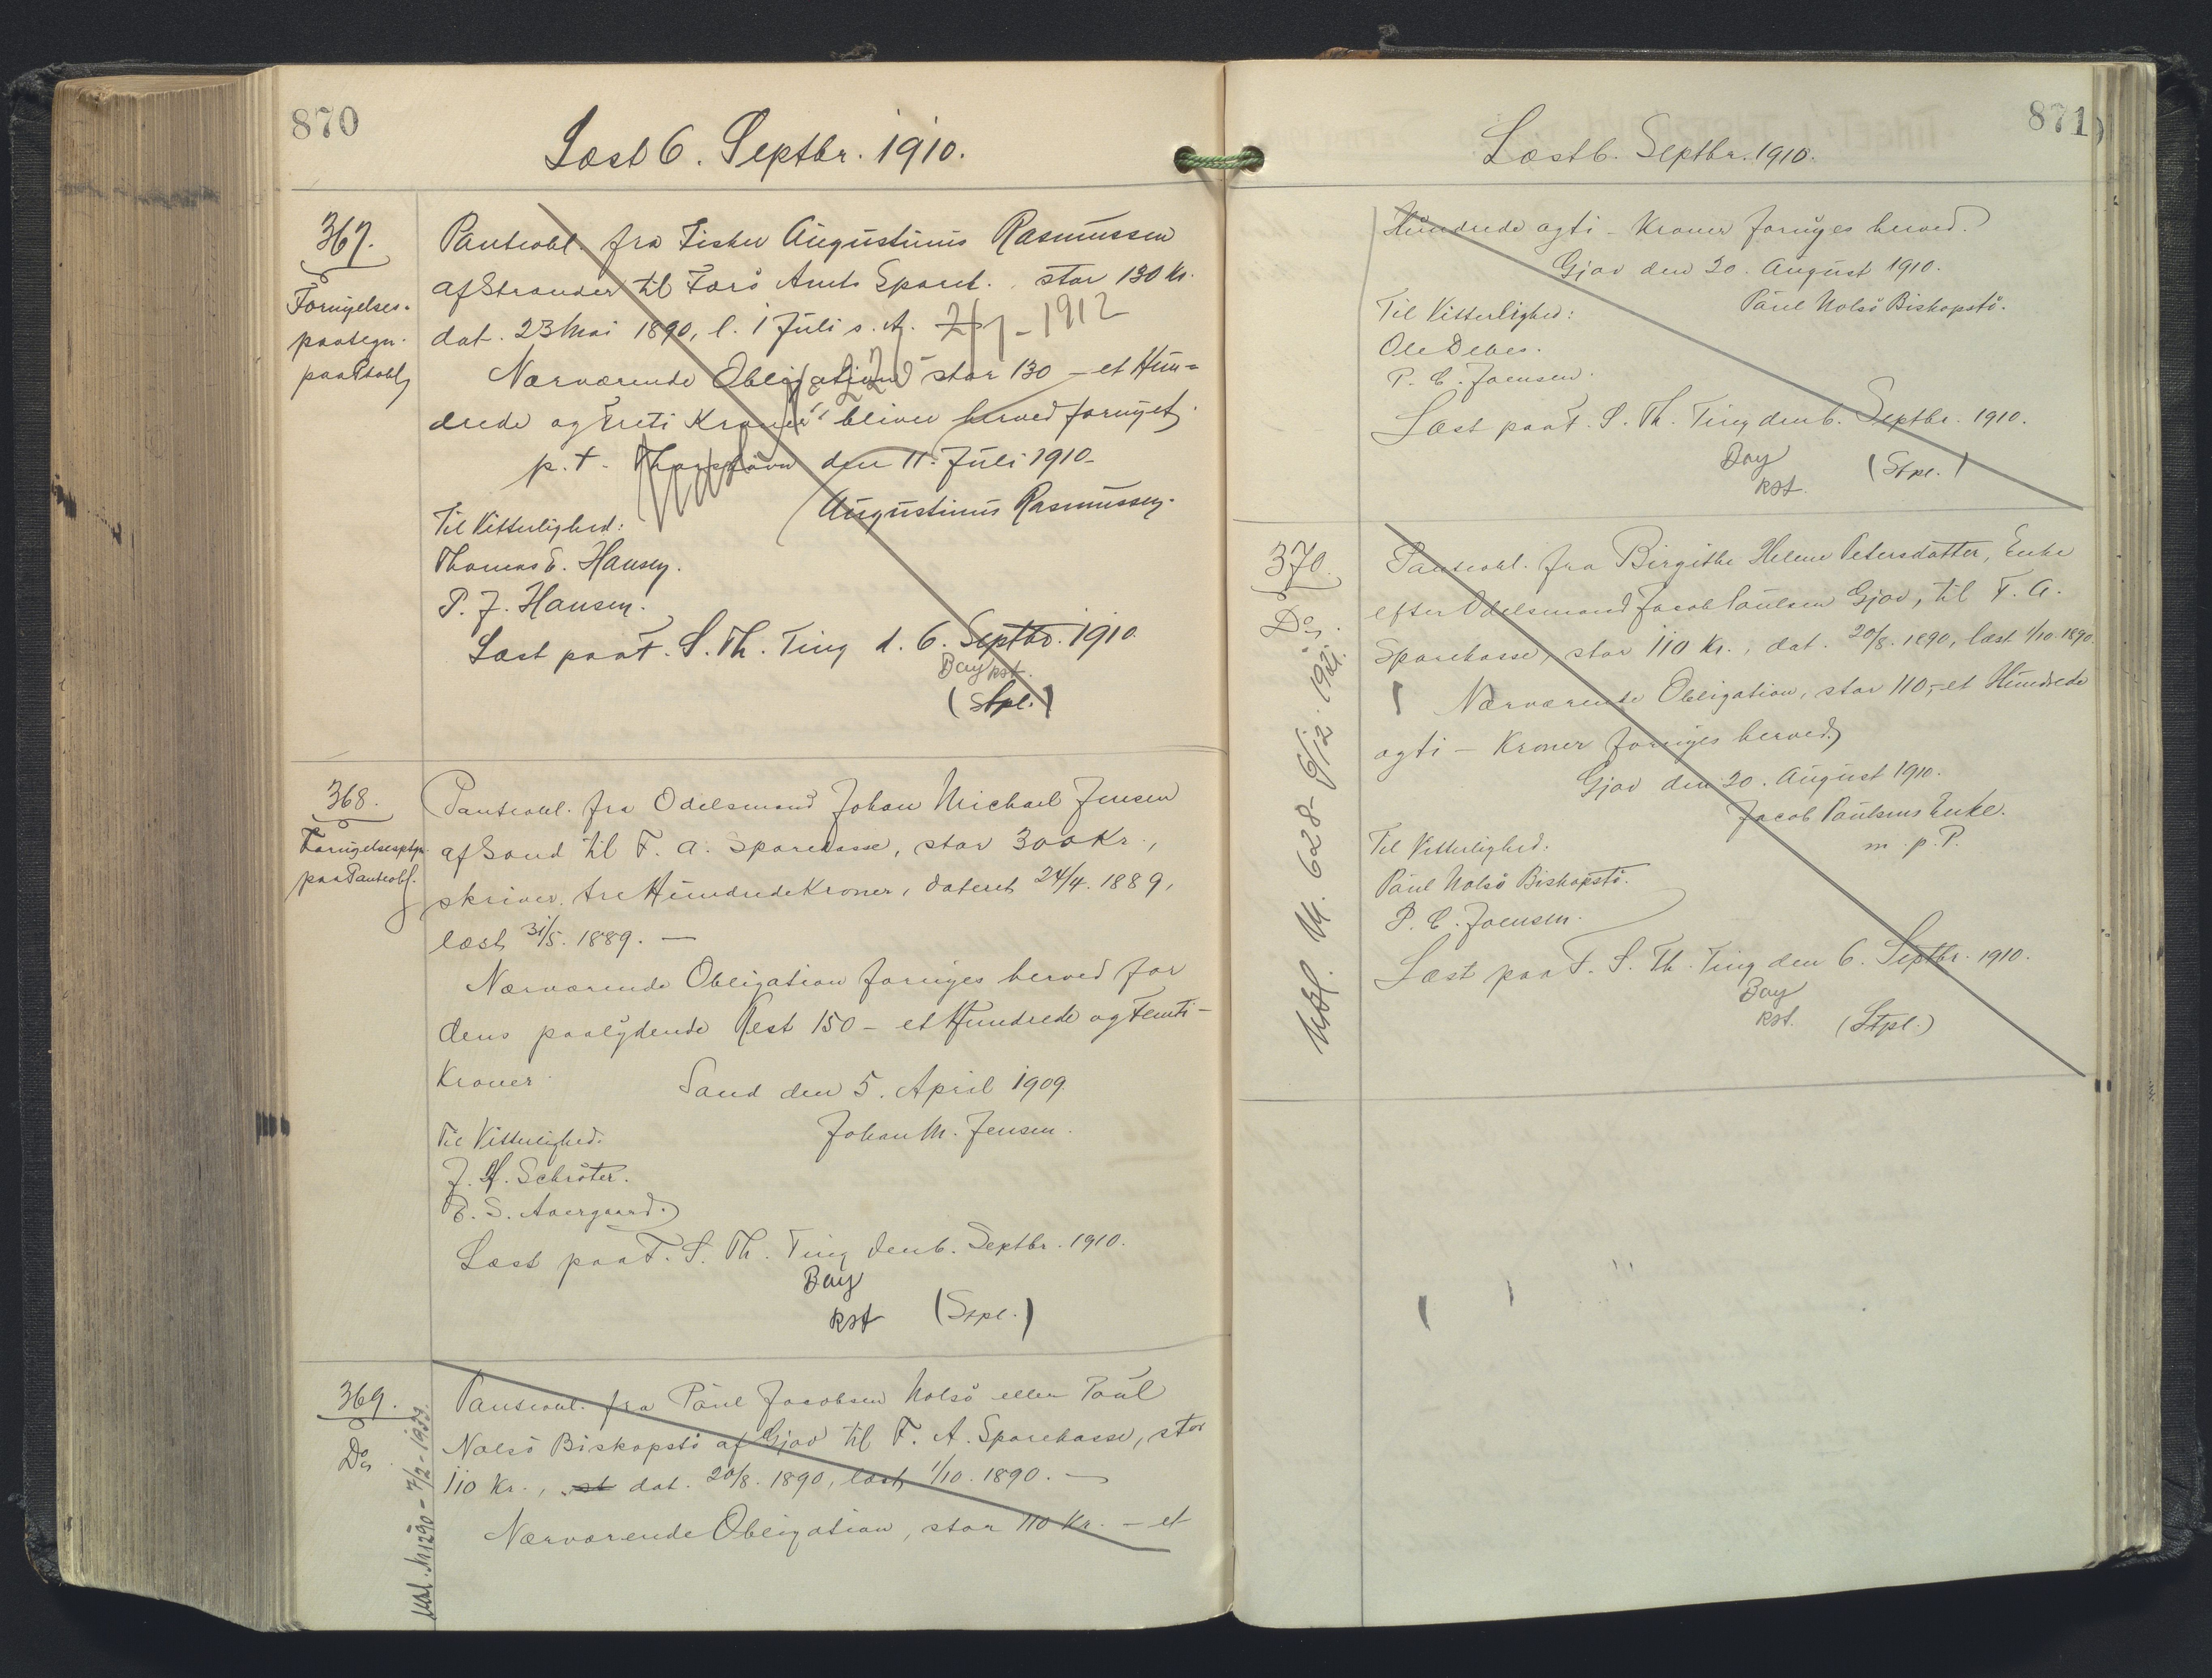 870
Læst 6. Septbr. 1910.
367.
Fornyelses-
paategn.
paa Ptobl.
Panteobl. fra Fisker Augustinus Rasmussen
af Strander til Færø Amts Sparek. stor 130 Kr.
dat. 23 Mai 1890, l. 1 Juli s. A.
Nærværende Obligation stor 130 - et Hun=
drede og Treti Kroner bliver herved fornyet.
p. t. Thorshavn den 11. Juli 1910.
Augustinus Rasmussen.
Til Vitterlighed:
Thomas E. Hansen.
P. J. Hansen.
Læst paa F. S. Th. Ting d. 6. Septbr. 1910.
Bay kst.
(Stpl.)
368.
Fornyelsesptgn.
paa Panteobl.
Panteobl. fra Odelsmand Johan Michael Jensen
af Sand til F. A. Sparekasse, stor 300 Kr.,
skriver tre Hundrede Kroner, dateret 24/4. 1889,
læst 31/5. 1889. —
Nærværende Obligation fornyes herved for
dens paalydende Rest 150 - et Hundrede og Femti -
Kroner.
Sand den 5. April 1909.
Johan M. Jensen.
Til Vitterlighed.
J. H. Schrøter.
Læst paa F. S. Th. Ting den 6. Septbr. 1910.
Bay
kst
(Stpl.)
369.
Do.
Udsl. Nr 1290 - 7/2 - 1933.
Panteobl. fra Poul Jacobsen Nolsø eller Poul
Nolsø Biskopstø af Gjov til F. A. Sparekasse, stor
110 Kr., dat. 20/8. 1890, læst 1/10. 1890. —
Nærværende Obligation, stor 110 Kr. - et
871
Læst 6. Septbr. 1910.
Hundrede og ti - Kroner fornyes herved.
Gjov den 20. August 1910.
Poul Nolsø Biskopstø.
Til Vitterlighed:
Ole Debes.
P. C. Joensen.
Læst paa F. S. Th. Ting den 6. Septbr. 1910.
Bay
kst.
(Stpl.)
370.
Do.
Udsl. M. 628 - 6/12. 1921.
Panteobl. fra Birgithe Helene Petersdatter, Enke
efter Odelsmand Jacob Poulsen Gjov, til F. A.
Sparekasse, stor 110 Kr., dat. 20/8. 1890, læst 1/10 1890
Nærværende Obligation, stor 110,- et Hundrede
og ti - Kroner fornyes herved.
Gjov den 20. August 1910.
Jacob Poulsens Enke.
m. p. P.
Til Vitterlighed.
Poul Nolsø Biskopstø.
P. C. Joensen.
Læst paa F. S. Th. Ting den 6. Septbr. 1910.
Bay
kst.
(Stpl.)